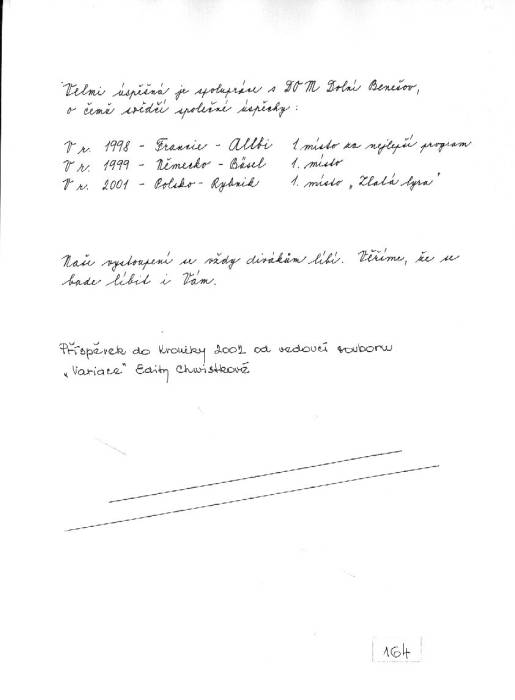 Velmi úspěšná je spolupráce s DOM Dolní Benešov,
o čemž svědčí společné úspěchy:
V r. 1998 - Francie - Allbi 1. místo za nejlepší program
V r. 1999 - Německo - Bösel 1. místo
V r. 2001 - Polsko - Rybnik 1. místo „Zlatá lyra"
Naše vystoupení se vždy divákům líbí. Věříme, že se
bude líbit i Vám.
Příspěvek do Kroniky 2002 od vedoucí souboru
„Variace" Edity Chwistkové
164